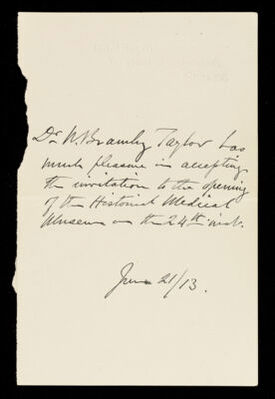 Dr. W. Bramley Taylor has
much pleasure in accepting
the invitation to the opening
of the Historical Medical
Museum on the 24th inst.
June 21/13.